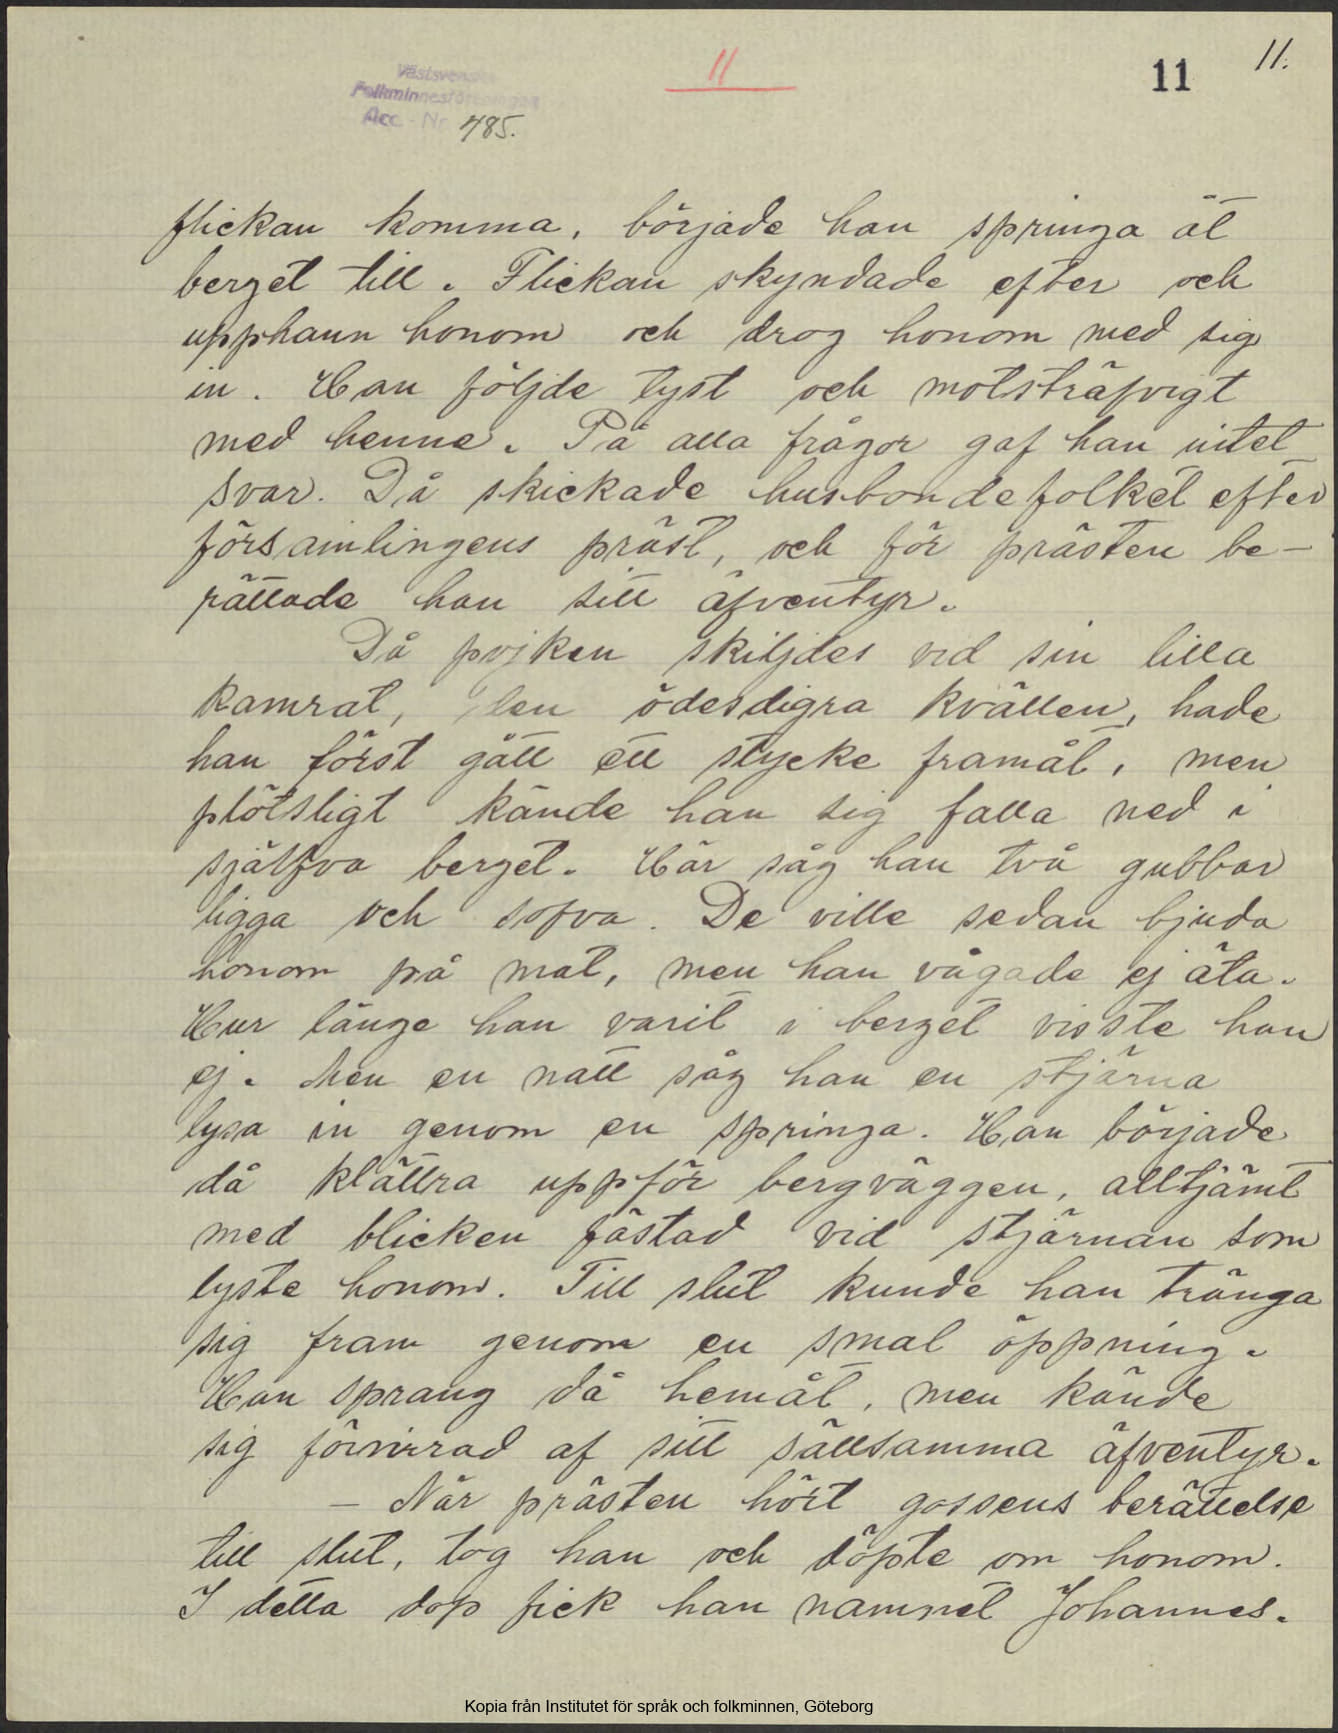 11
11
11.
Västsvenska
Folkminnesföreningen
Acc - Nr 485.
flickan komma, började han springa åt
berget till. Flickan skyndade efter och
upphann honom och drog honom med sig
in. Han följde tyst och motsträfvigt
med henne. På alla frågor gaf han intet
svar. Då skickade husbondefolket efter
församlingens präst, och för prästen be-
rättade han sitt äfventyr.
Då pojken skiljdes vid sin lilla
kamrat, den ödesdigra kvällen, hade
han först gått ett stycke framåt, men
plötsligt kände han sig falla ned i
själfva berget. Här såg han två gubbar
ligga och sofva. De ville sedan bjuda
honom på mat, men han vågade ej äta.
Hur länge han varit i berget visste han
ej. Men en natt såg han en stjärna
lysa in genom en springa. Han började
då klättra uppför bergväggen, alltjämt
med blicken fästad vid stjärnan som
lyste honom. Till slut kunde han tränga
sig fram genom en smal öppning.
Han sprang då hemåt, men kände
sig förvirrad af sitt sällsamma äfventyr.
– När prästen hört gossens berättelse
till slut, tog han och döpte om honom.
I detta dop fick han namnet Johannes.
Kopia från Institutet för språk och folkminnen, Göteborg